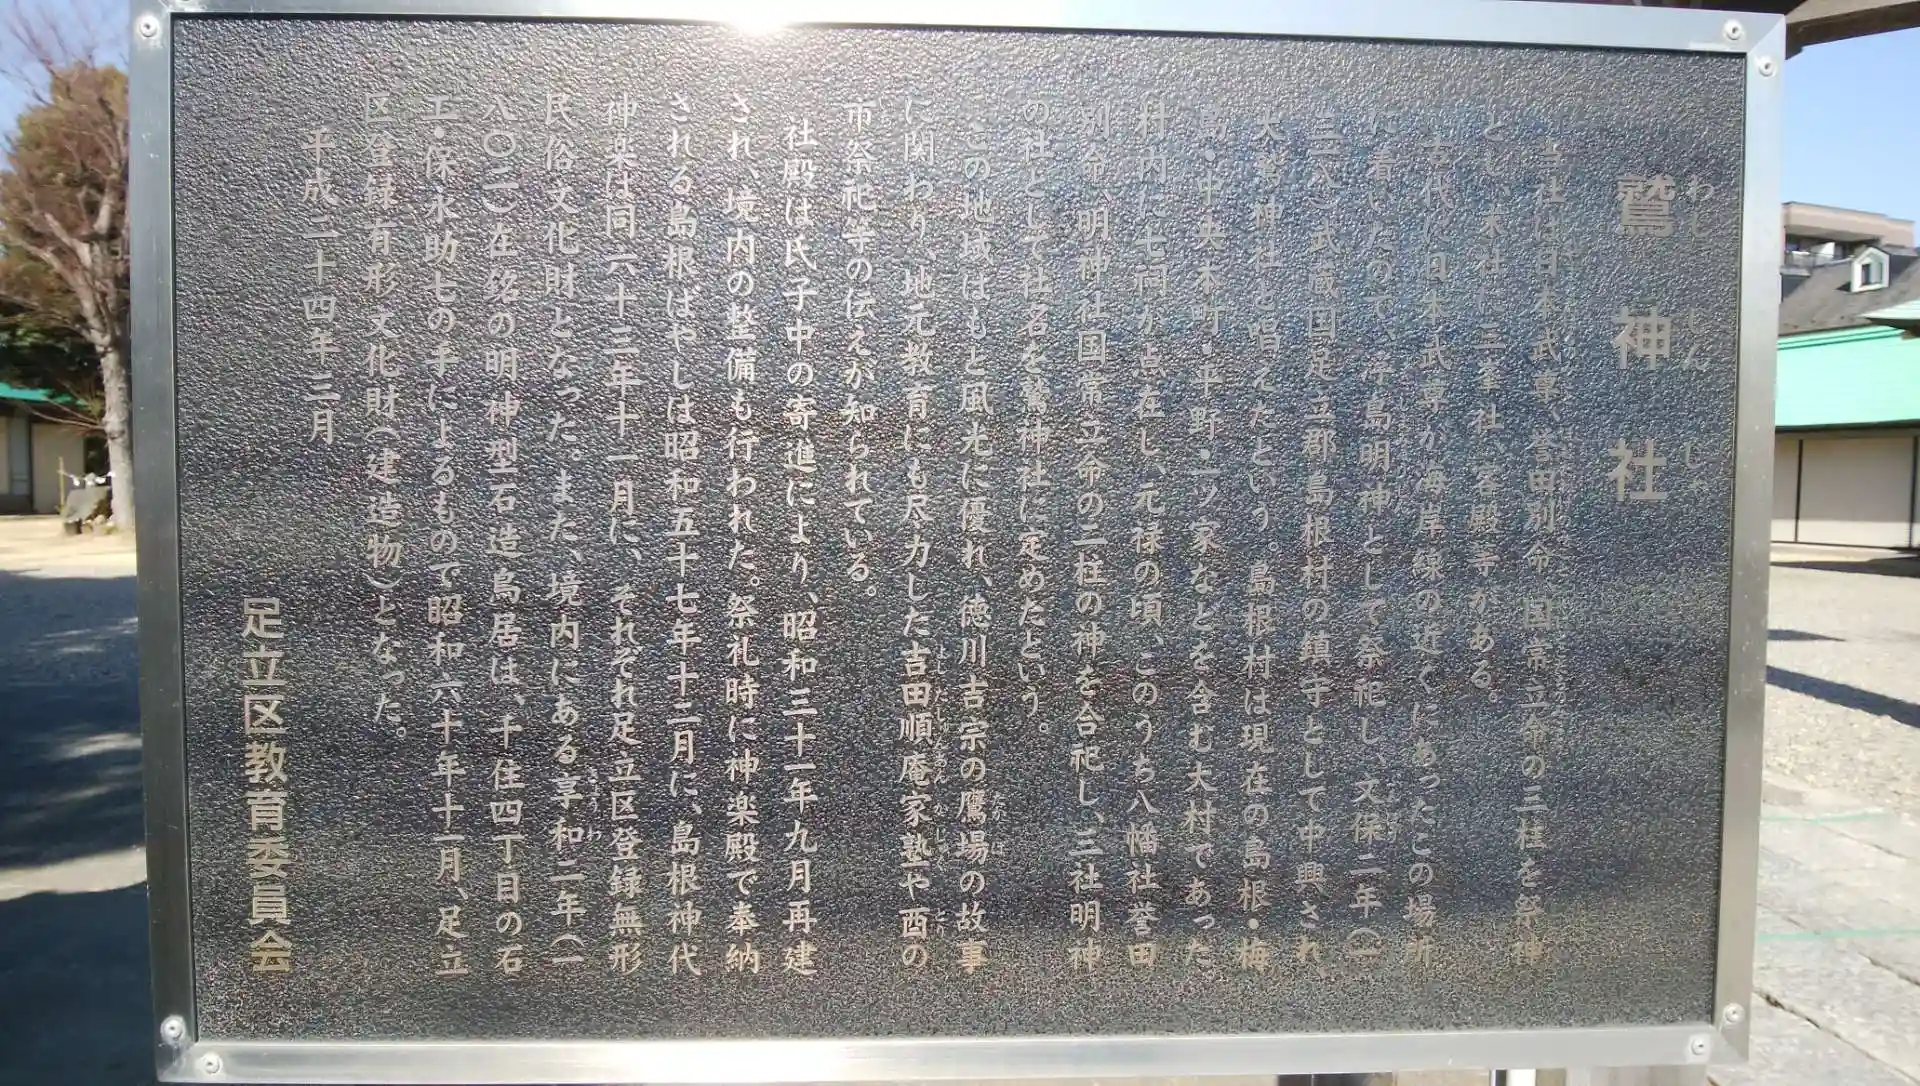 鷲神社
わししんじゃ
当社は日本武尊、誉田別命、国常立命の三柱を祭神
とし、末社に三峯社、客殿等がある。
古代に日本武尊が海岸線の近くにあったこの場所
に着いたので、浮島明神として祭祀し、文保二年(一
三一八)武蔵国足立郡島根村の鎮守として中興され、
大鷲神社と唱えたという。島根村は現在の島根・梅
島・中央本町・平野・一ツ家などを含む大村であった
村内に七祠が点在し、元禄の頃、このうち八幡社誉田
別命、明神社国常立命の二柱の神を合祀し、三社明神
の社として社名を鷲神社に定めたという。
この地域はもと風光に優れ、徳川吉宗の鷹場の故事
たかば
に関わり、地元教育にも尽力した吉田順庵家塾や酉の
よしだじゅんあん かじゅく とり
市祭祀等の伝えが知られている。
社殿は氏子中の寄進により、昭和三十一年九月再建
され、境内の整備も行われた。祭礼時に神楽殿で奉納
される島根ばやしは昭和五十七年十二月に、島根神代
神楽は同六十三年十一月に、それぞれ足立区登録無形
民俗文化財となった。また、境内にある享和二年(一
きょうわ
八〇二)在銘の明神型石造鳥居は、千住四丁目の石
工・保永助七の手によるもので昭和六十年十一月、足立
区登録有形文化財(建造物)となった。
平成二十四年三月
足立区教育委員会